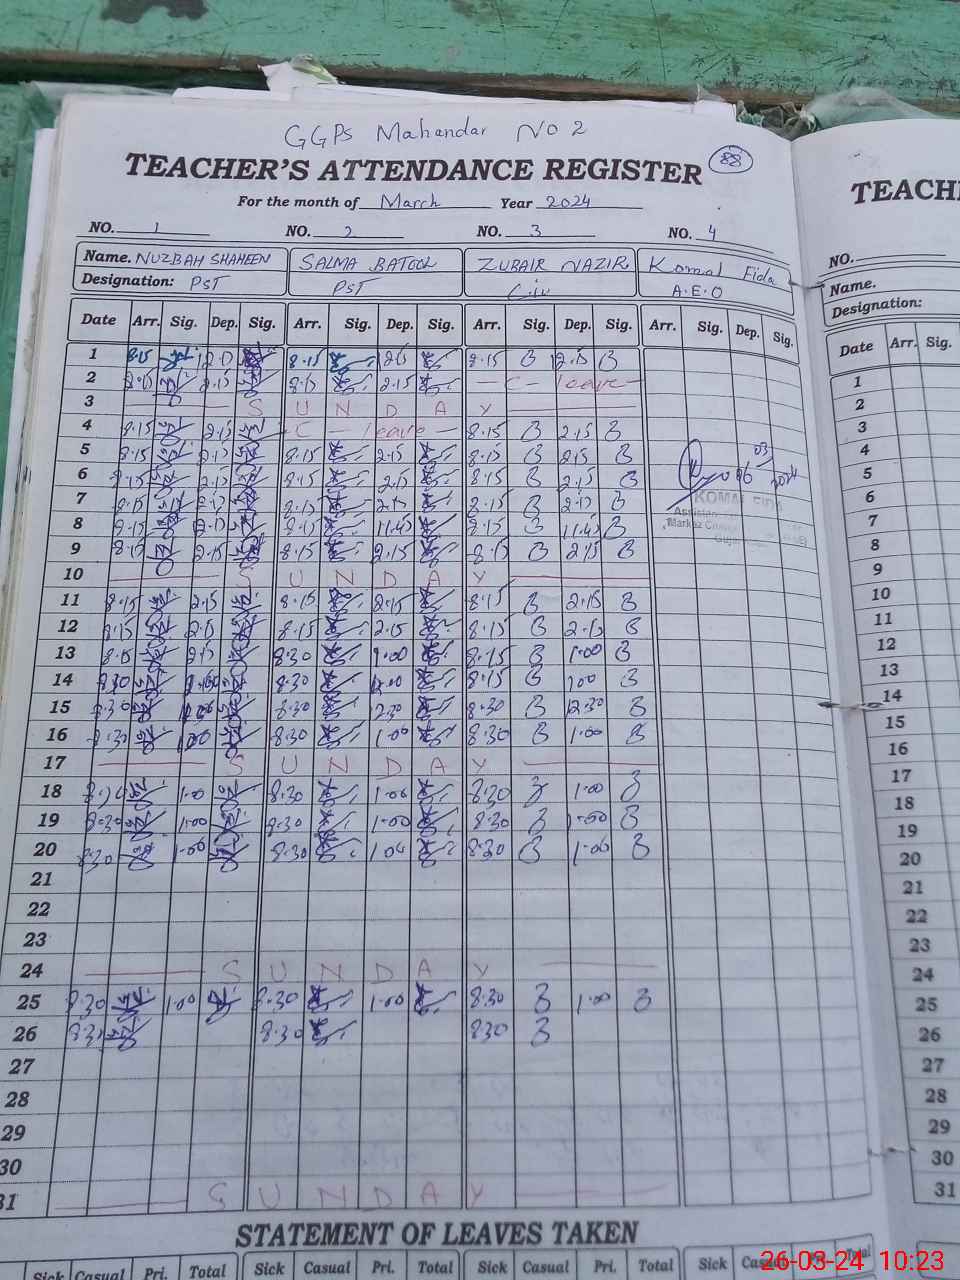 GGPS Mahandar No 2
TEACHER'S ATTENDANCE REGISTER 88
For the month of March Year 2024
NO. 1 NO. 2 NO. 3 NO. 4
Name. NUZBAH SHAHEEN SALMA BATOOL ZUBAIR NAZIR Komal Fida
Designation: PST PST A.E.O
Date Arr. Sig. Dep. Sig. Arr. Sig. Dep. Sig. Arr. Sig. Dep. Sig. Arr. Sig. Dep. Sig.
1 8.15 2.15 8.15 2.15 8.15 2.15
2 8.15 2.15 8.15 2.15 C - leave
3 SUNDAY
4 8.15 2.15 C - leave 8.15 2.15
5 8.15 2.15 8.15 2.15 8.15 2.15
6 8.15 2.15 8.15 2.15 8.15 2.15
7 8.15 2.15 8.15 2.15 8.15 2.15
8 8.15 8.15 11.45 8.15 11.45
9 8.15 2.15 8.15 2.15 8.15 2.15
10 SUNDAY
11 8.15 2.15 8.15 2.15 8.15 2.15
12 8.15 2.15 8.15 2.15 8.15 2.15
13 8.15 8.30 1.00 8.15 1.00
14 8.30 8.30 8.15 1.00
15 8.30 8.30 12.30 8.30 12.30
16 8.30 1.00 8.30 1.00 8.30 1.00
17 SUNDAY
18 1.00 8.30 1.00 8.30 1.00
19 8.30 1.00 8.30 1.00 8.30 1.00
20 8.30 1.00 8.30 1.00 8.30 1.00
21
22
23
24 SUNDAY
25 8.30 1.00 8.30 1.00 8.30 1.00
26 8.30 8.30 830
27
28
29
30
31 SUNDAY
KOMAL FIDA
STATEMENT OF LEAVES TAKEN
Sick Casual Pri. Total Sick Casual Pri. Total Sick Casual Pri. Total Sick Casual Pri. Total
TEACH
NO.
Name.
Designation:
Date Arr. Sig.
1
2
3
4
5
6
7
8
9
10
11
12
13
14
15
16
17
18
19
20
21
22
23
24
25
26
27
28
29
30
31
26-03-24 10:23